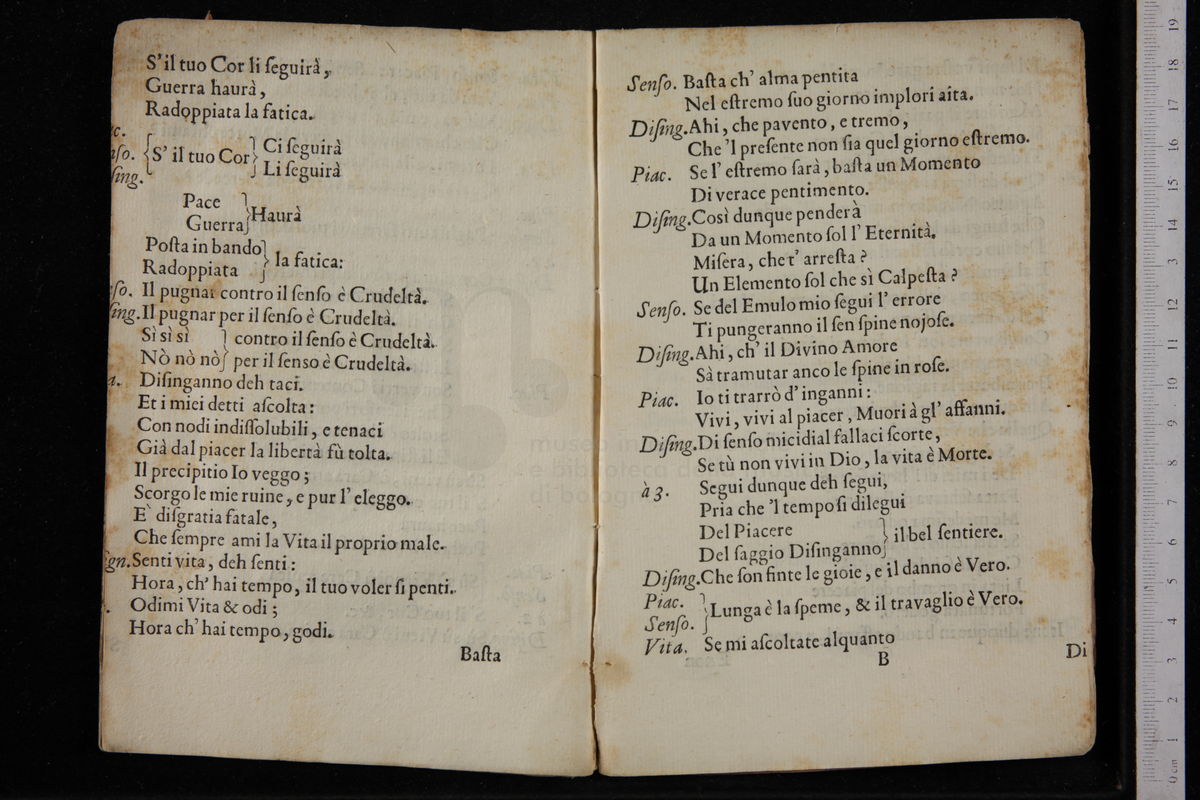 S'il tuo Cor li ſeguirà,
Guerra haurà,
Radoppiata la fatica.
c.
ſo. { S' il tuo Cor } Ci ſeguirà
ſing. Li ſeguirà
Pace
Guerra } Haurà
Poſta in bando
Radoppiata } la fatica:
ſo. Il pugnar contro il ſenſo è Crudeltà.
ſing. Il pugnar per il ſenſo è Crudeltà.
Sì sì sì } contro il ſenſo è Crudeltà.
Nò nò nò } per il ſenso è Crudeltà.
a. Diſinganno deh taci.
Et i miei detti aſcolta:
Con nodi indiſſolubili, e tenaci
Già dal piacer la libertà fù tolta.
Il precipitio Io veggo;
Scorgo le mie ruine, e pur l' eleggo.
E` diſgratia fatale,
Che ſempre ami la Vita il proprio male.
gn. Senti vita, deh ſenti:
Hora, ch' hai tempo, il tuo voler ſi penti.
. Odimi Vita & odi;
Hora ch' hai tempo, godi.
Baſta
Senſo. Baſta ch' alma pentita
Nel eſtremo ſuo giorno implori aita.
Diſing. Ahi, che pavento, e tremo,
Che 'l preſente non ſia quel giorno eſtremo.
Piac. Se l' eſtremo ſarà, baſta un Momento
Di verace pentimento.
Diſing. Così dunque penderà
Da un Momento ſol l' Eternità.
Miſera, che t' arreſta?
Un Elemento ſol che sì Calpeſta?
Senſo. Se del Emulo mio ſegui l' errore
Ti pungeranno il ſen ſpine nojoſe.
Diſing. Ahi, ch' il Divino Amore
Sà tramutar anco le ſpine in roſe.
Piac. Io ti trarrò d' inganni:
Vivi, vivi al piacer, Muori à gl' affanni.
Diſing. Di ſenſo micidial fallaci ſcorte,
Se tù non vivi in Dio, la vita è Morte.
à 3. Segui dunque deh ſegui,
Pria che 'l tempo ſi dilegui
Del Piacere
Del ſaggio Diſinganno } il bel ſentiere.
Diſing. Che ſon finte le gioie, e il danno è Vero.
Piac.
Senſo. } Lunga è la ſpeme, & il travaglio è Vero.
Vita. Se mi aſcoltate alquanto
B
Di